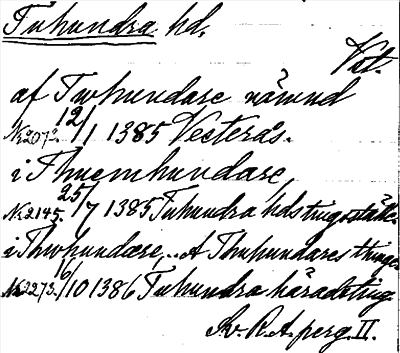 Tuhundra hd.
Vstm.
af Twhundare nämnd
Nr 2072. 12/1 1385 Vesterås.
i Thuemhundare,
Nr 2145. 25/7 1385 Tuhundra hds tingsställe.
i Thwhundære,... A Thuhundares thinge
Nr 2273. 16/10 1386 Tuhundra häradsting.
Sv. R.A. perg. II.